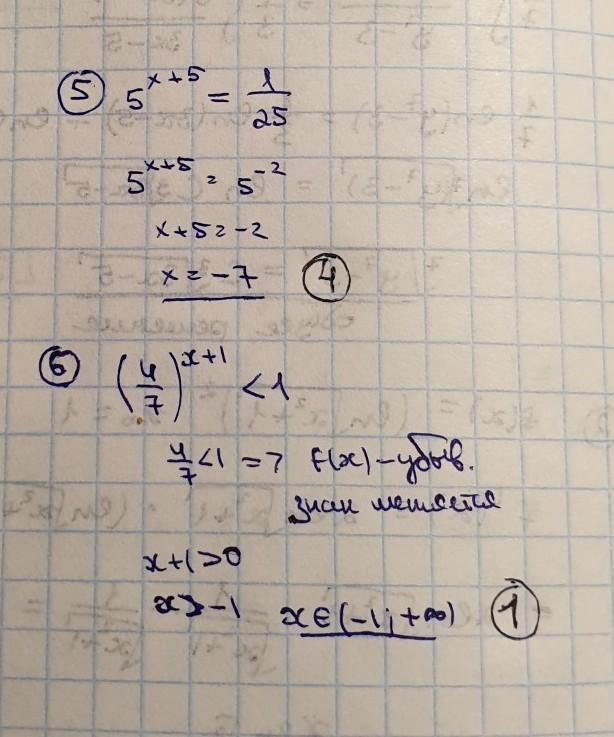 ⑤ 5^(x+5) = 1/25
5^(x+5) = 5^(-2)
x+5=-2
x = -7 ④
⑥ (4/7)^(x+1) < 1
4/7 < 1 => f(x) - убыв.
знак меняется
x+1>0
x>-1 x∈(-1; +∞) ①